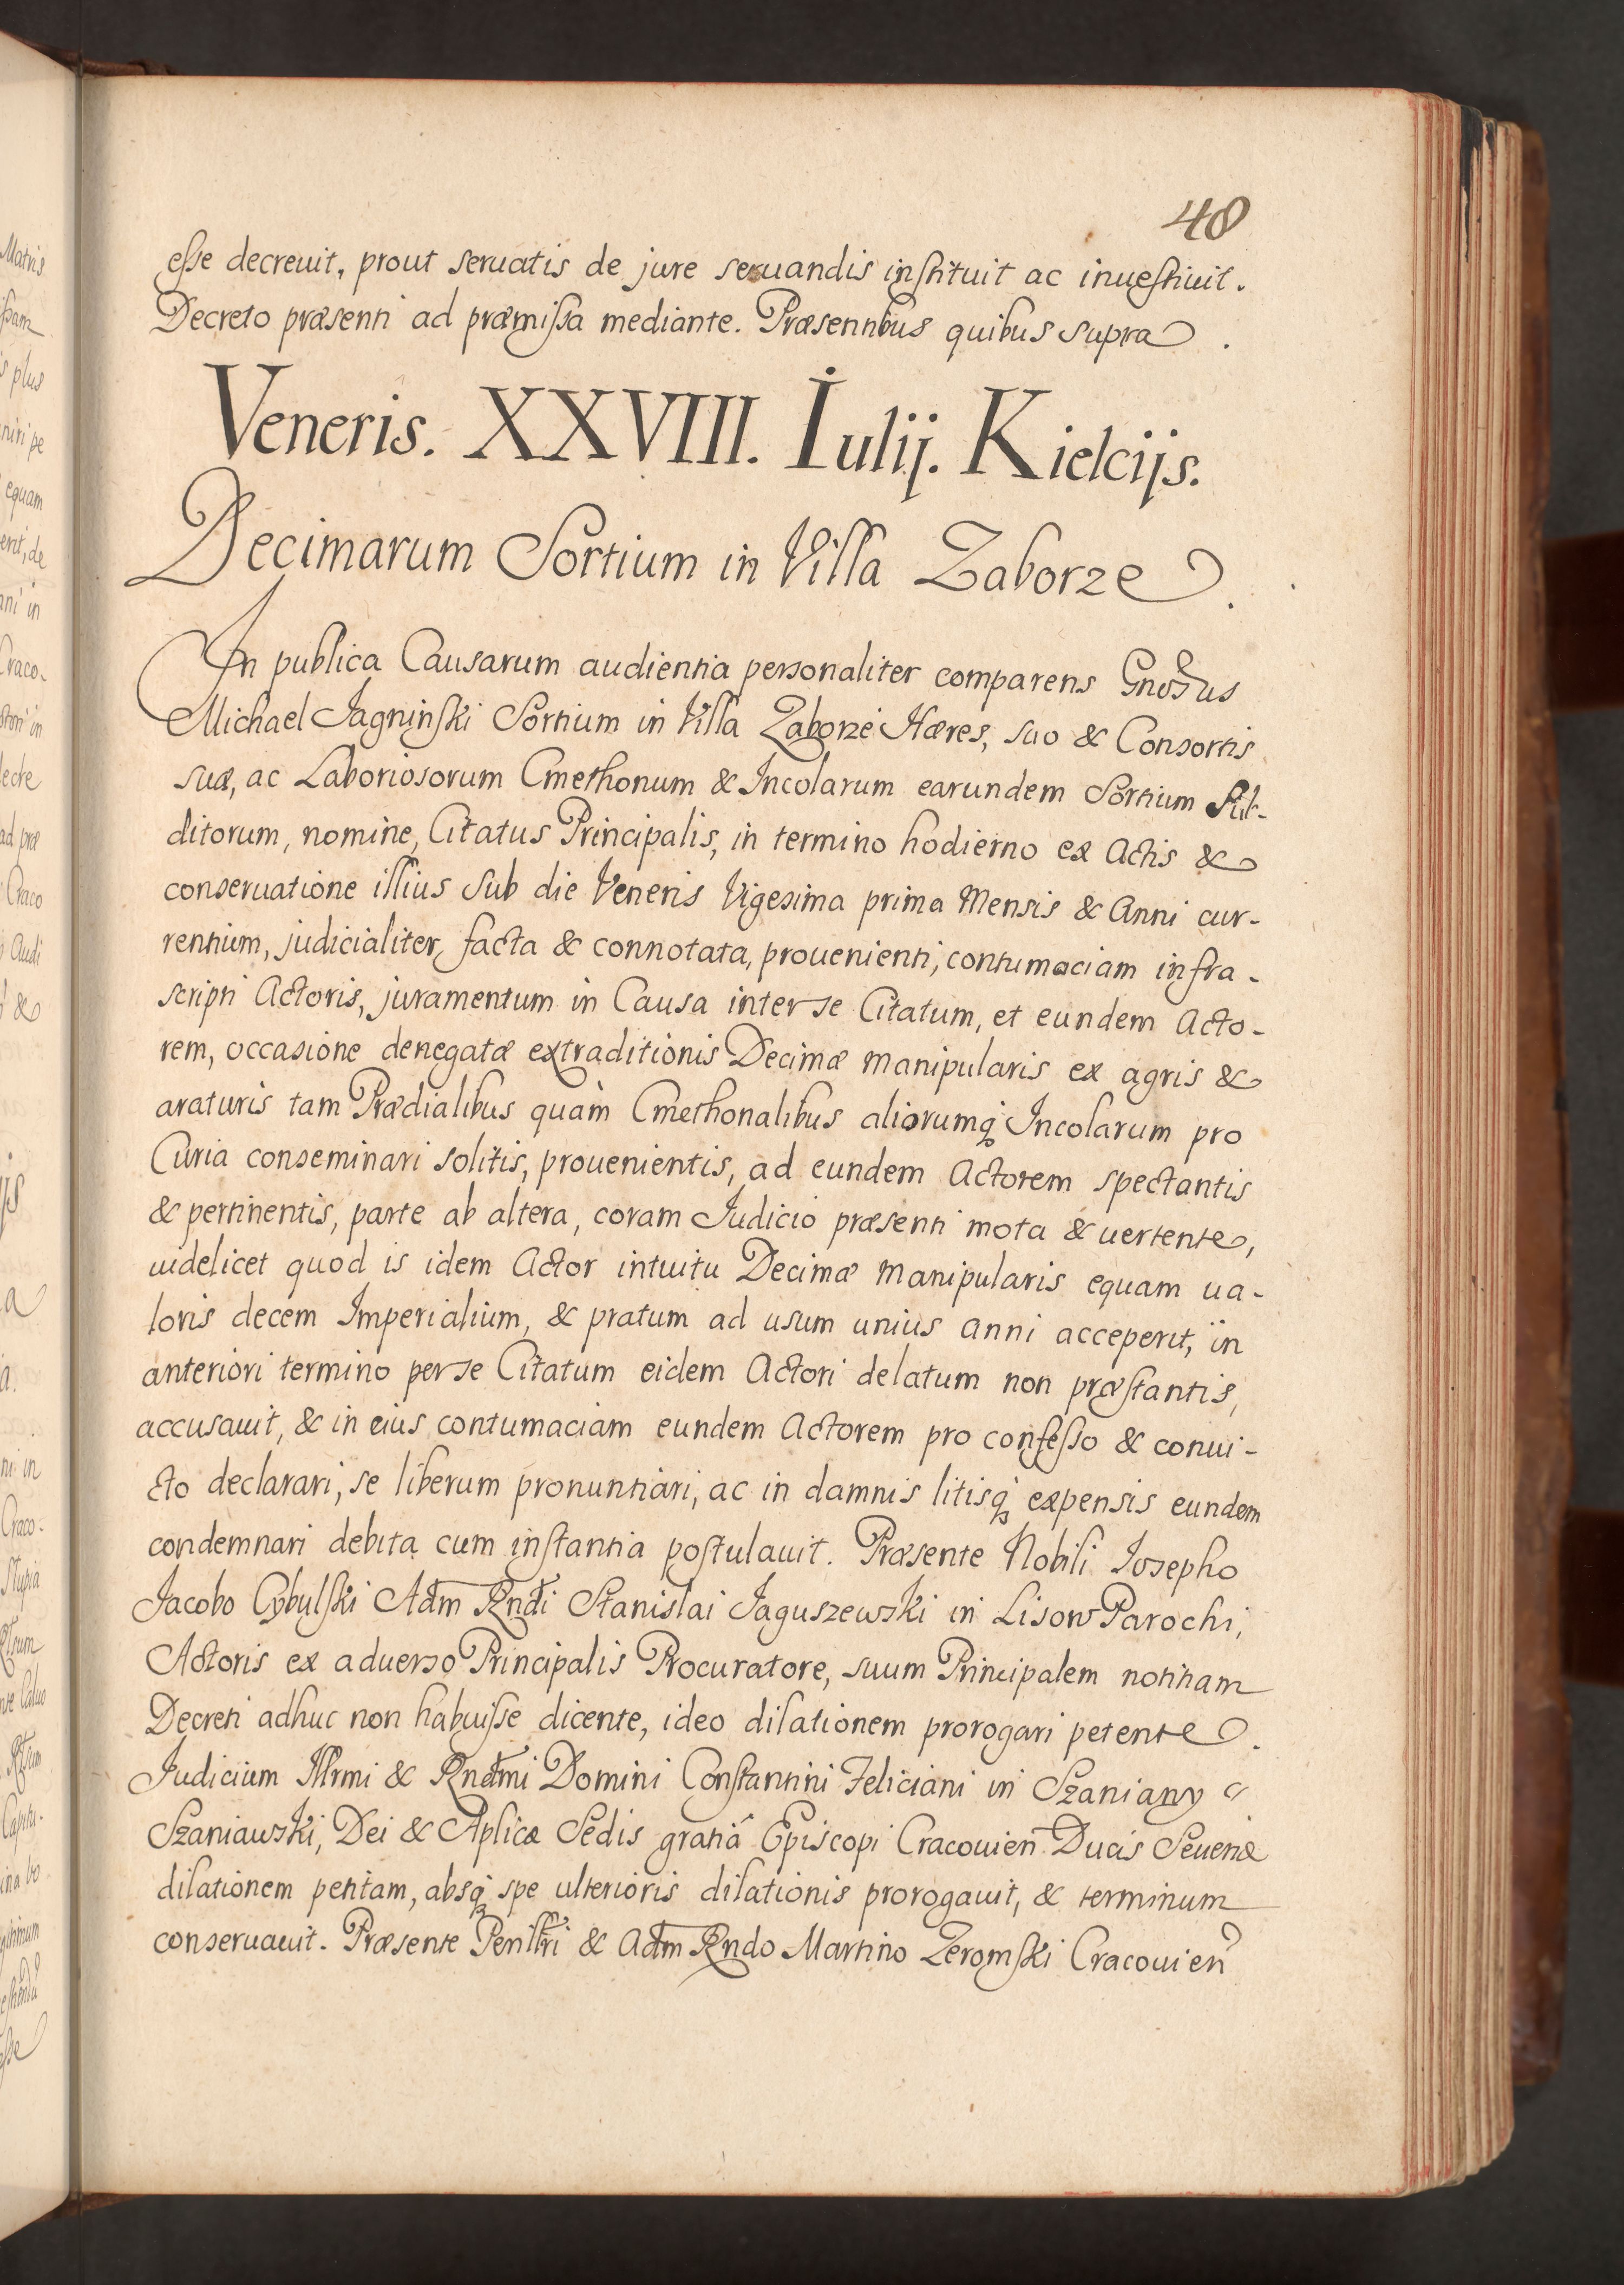 48
esse decreuit, prout seruatis de jure seruandis instituit ac inuestiuit.
Decreto præsenti ad præmissa mediante. Præsentibus quibus supra.
Veneris. XXVIII. Iulij. Kielcijs.
Decimarum Sortium in Villa Zaborze.
In publica Causarum audientia personaliter comparens Gnosus
Michael Jagninski Sortium in Villa Zaborze Hæres, suo & Consortis
suæ, ac Laboriosorum Cmethonum & Incolarum earundem Sortium Sub-
ditorum, nomine, Citatus Principalis, in termino hodierno ex Actis &
conseruatione illius sub die Veneris Vigesima prima Mensis & Anni cur-
rentium, judicialiter facta & connotata, prouenienti, contumaciam infra-
scripti Actoris, juramentum in Causa inter se Citatum, et eundem Acto-
rem, occasione denegatæ extraditionis Decimæ manipularis ex agris &
araturis tam Prædialibus quàm Cmethonalibus aliorumq Incolarum pro
Curia conseminari solitis, prouenientis, ad eundem Actorem spectantis
& pertinentis, parte ab altera, coram Judicio præsenti mota & uertente,
uidelicet quod is idem Actor intuitu Decimæ manipularis equam ua-
loris decem Imperialium, & pratum ad usum unius anni acceperit, in
anteriori termino per se Citatum eidem Actori delatum non præstantis,
accusauit, & in eius contumaciam eundem Actorem pro confesso & conui-
cto declarari, se liberum pronuntiari, ac in damnis litisq expensis eundem
condemnari debita cum instantia postulauit. Præsente Nobili Josepho
Jacobo Cybulski Adm Rndi Stanislai Jaguszewski in Lisow Parochi,
Actoris ex aduerso Principalis Procuratore, suum Principalem notitiam
Decreti adhuc non habuisse dicente, ideo dilationem prorogari petente.
Judicium Illrmi & Rndmi Domini Constantini Feliciani in Szaniawy
Szaniawski, Dei & Aplicæ Sedis gratiâ Episcopi Cracouien Ducis Seueriæ
dilationem petitam, absq spe ulterioris dilationis prorogauit, & terminum
conseruauit. Præsente Penllri & Adm Rndo Martino Zeromski Cracouien